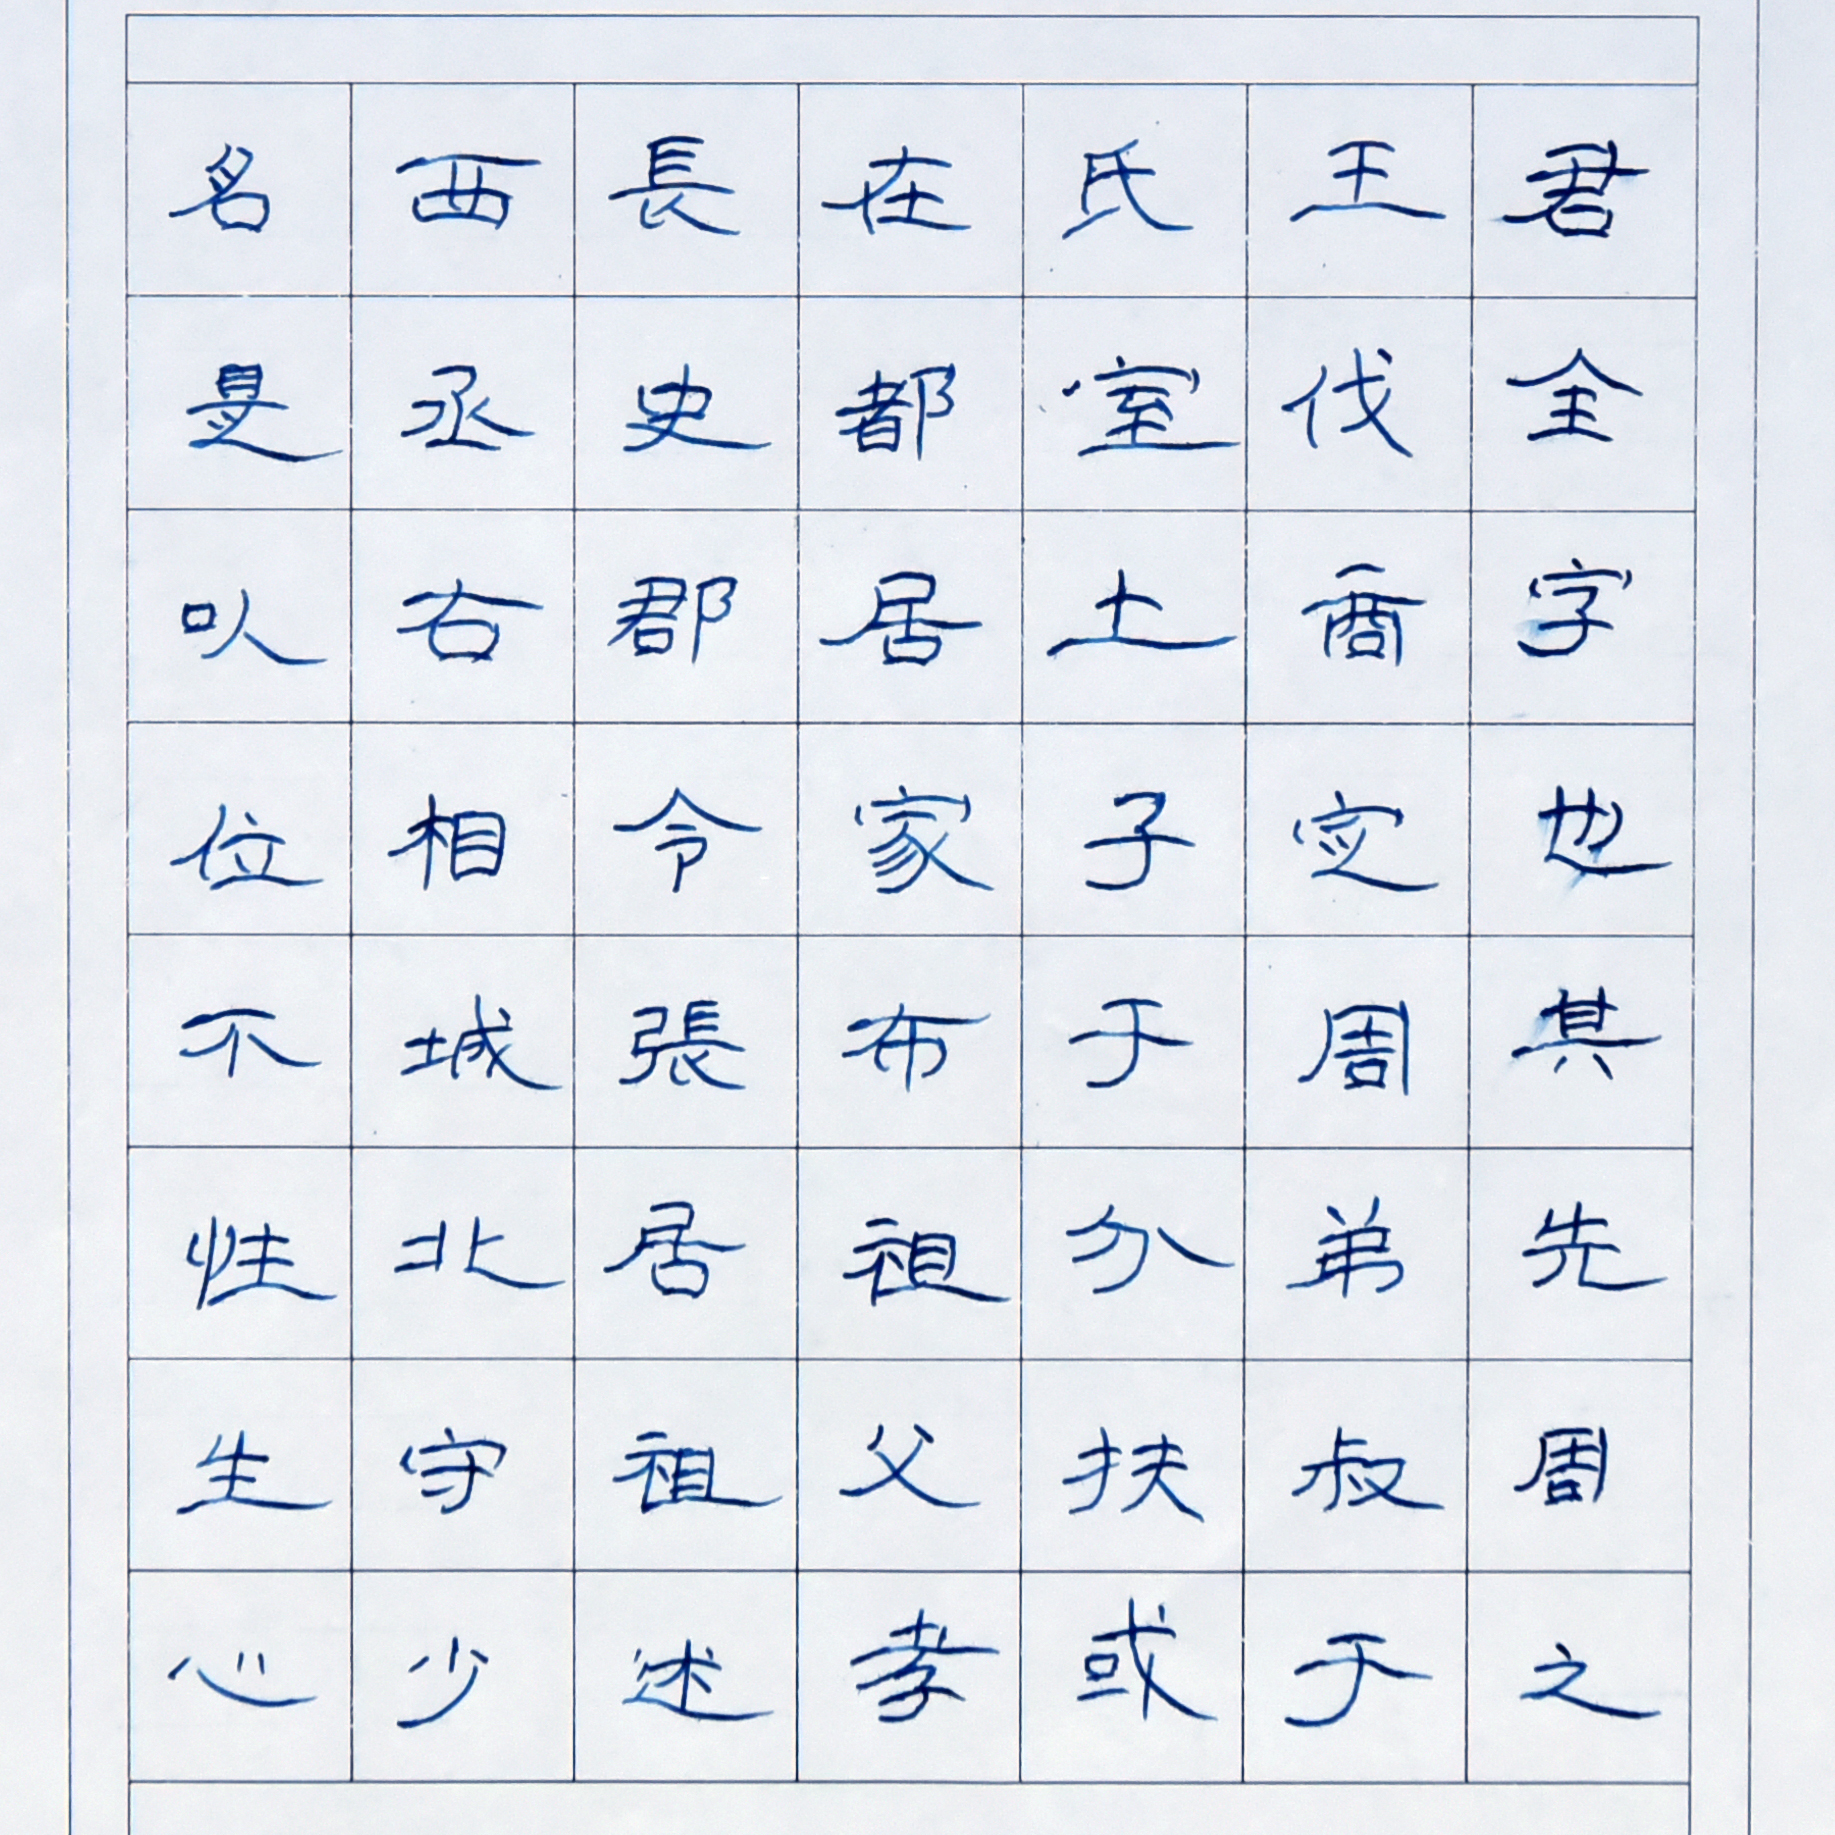 君全字也其先周之
王伐商定周弟叔于
氏室土子于分扶或
在都居家布祖父孝
長史郡令張居祖述
西丞右相城北守少
名是以位不性生心